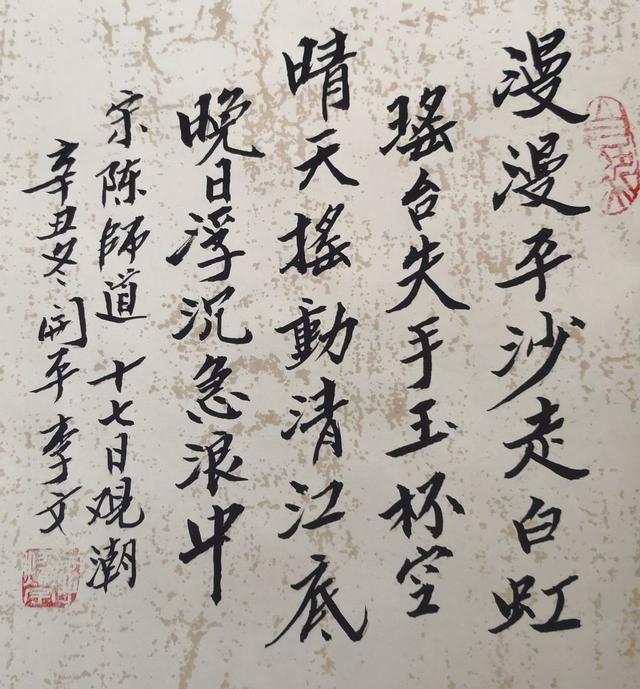 漫漫平沙走白虹
瑶台失手玉杯空
晴天摇動清江底
晚日浮沉急浪中
宗陈師道 十七日观潮
辛丑冬 開平李文